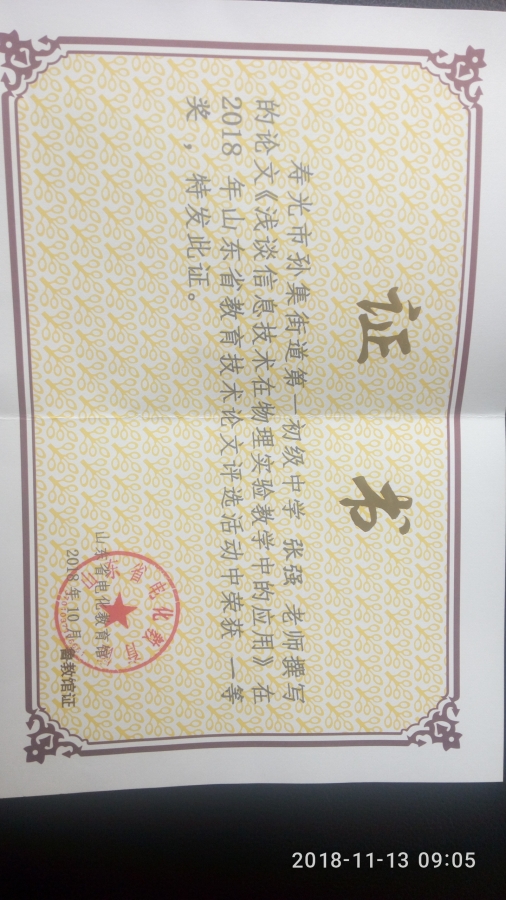 证书
寿光市孙集街道第一初级中学 张强 老师撰写
的论文《浅谈信息技术在物理实验教学中的应用》在
2018 年山东省教育技术论文评选活动中荣获 一等
奖，特发此证。
山东省电化教育馆
2018 年 10 月
鲁教馆证
2018-11-13 09:05